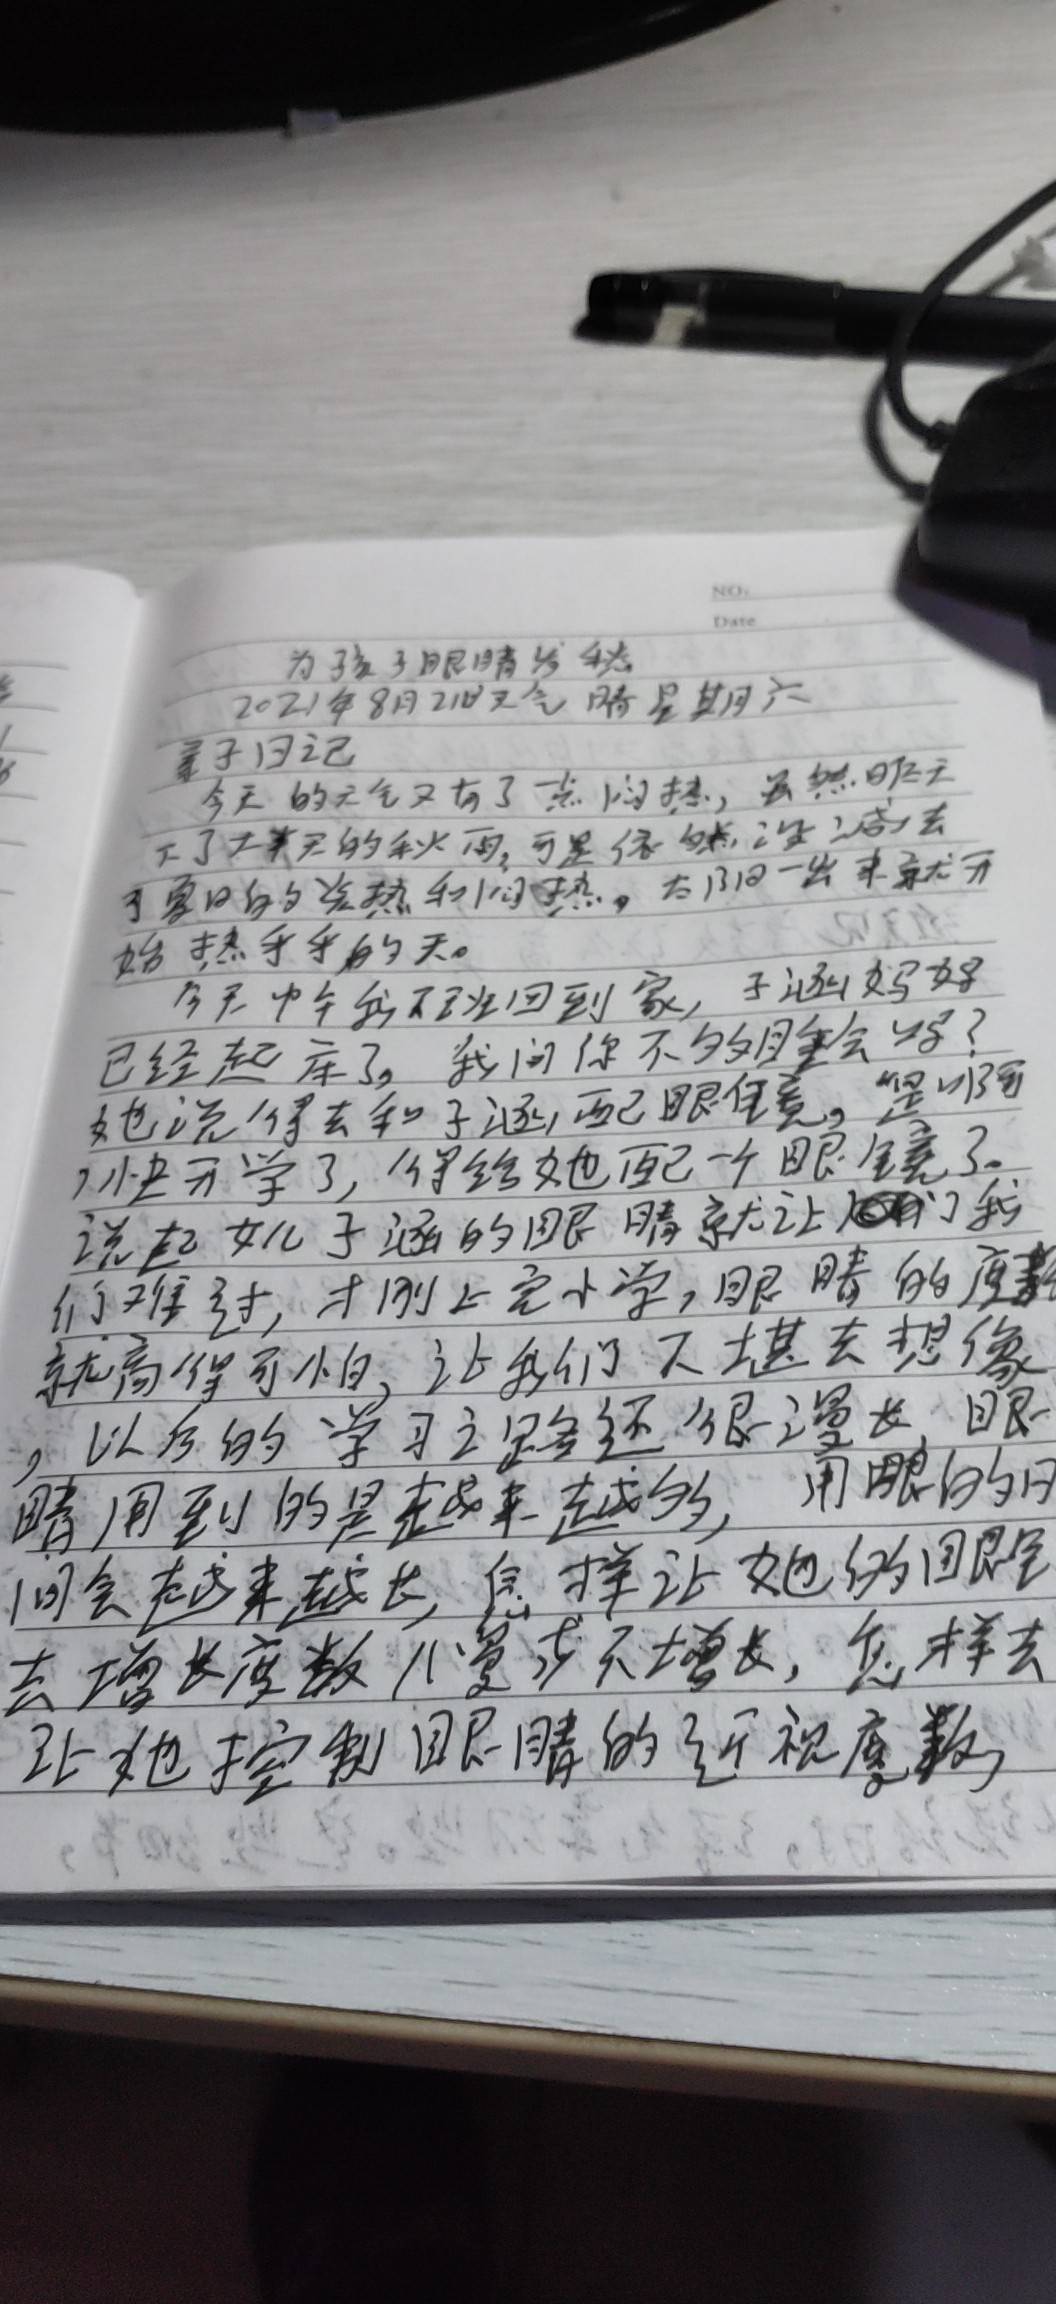 NO.
Date
为孩子眼睛发愁
2021年8月21日天气 晴 星期六
亲子日记
今天的天气又有了一点闷热，虽然昨天
下了大半天的秋雨，可是依然没减去
了夏日的炎热和闷热。太阳一出来就开
始热乎乎的天。
今天中午我下班回到家，子涵妈妈
已经起床了。我问你不多睡会呀？
她说得去和子涵配眼镜。是啊
，快开学了，得给她配一个眼镜了。
说起女儿子涵的眼睛就让我
们难过，才刚上完小学，眼睛的度数
就高得可怕，让我们不堪去想像
，以后的学习之路还很漫长，眼
睛用到的是越来越多，用眼的时
间会越来越长，怎样让她的眼
去增长度数慢或不增长，怎样去
让她控制眼睛的近视度数，